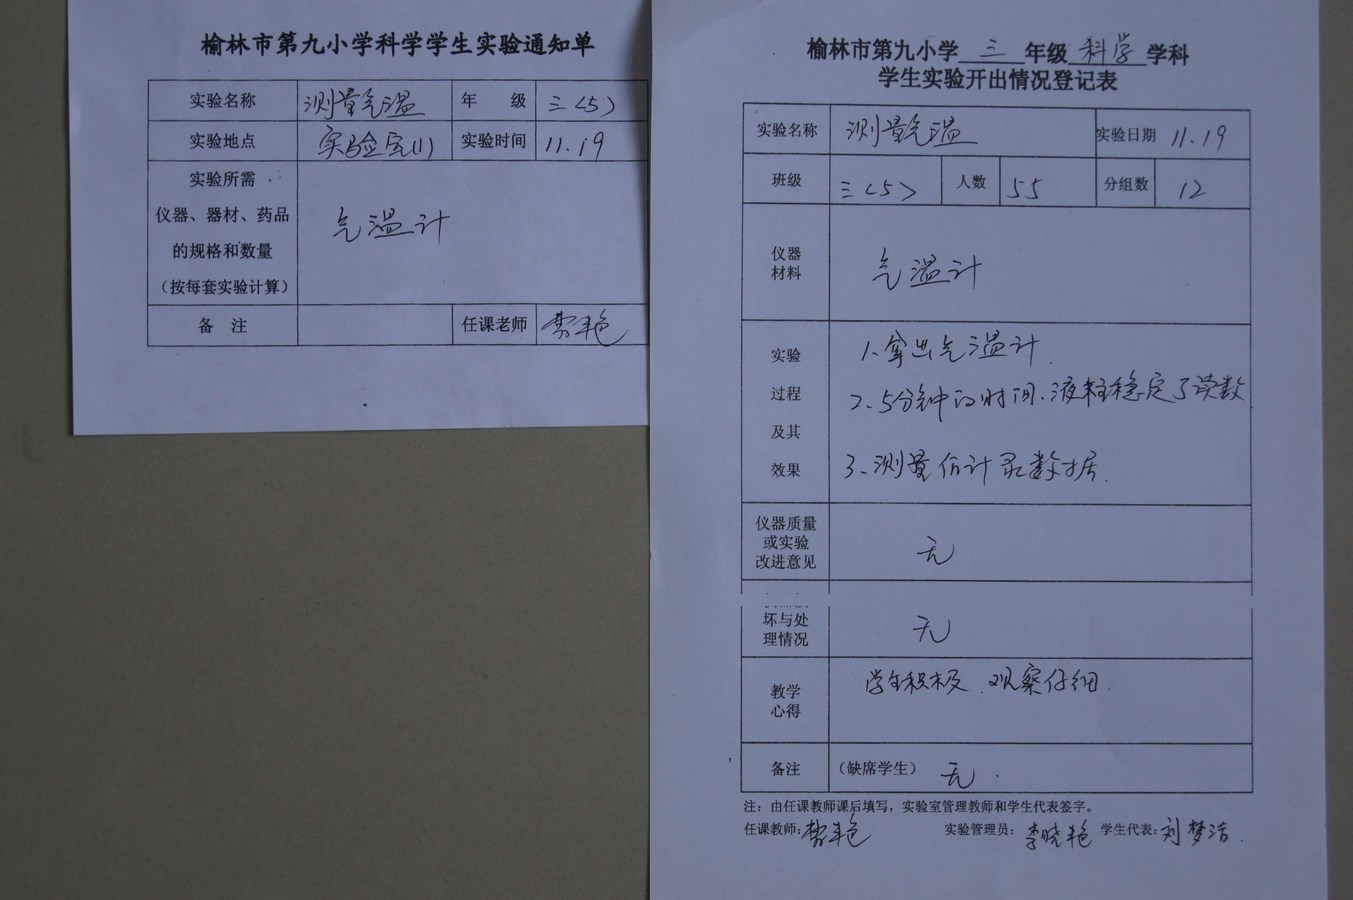 榆林市第九小学科学学生实验通知单
实验名称 测量气温 年 级 三（5）
实验地点 实验室(1) 实验时间 11.19
实验所需
仪器、器材、药品
的规格和数量
（按每套实验计算）
气温计
备 注 任课老师
榆林市第九小学 三 年级 科学 学科
学生实验开出情况登记表
实验名称 测量气温 实验日期 11.19
班级 三（5） 人数 55 分组数 12
仪器
材料
气温计
实验
过程
及其
效果
1、拿出气温计
2、5分钟的时间、液柱稳定了读数
3、测量后计录数据.
仪器质量
或实验
改进意见
无
坏与处
理情况
无
教学
心得
学生积极、观察仔细.
备注 （缺席学生） 无.
注：由任课教师课后填写，实验室管理教师和学生代表签字。
任课教师: 实验管理员: 李晓艳 学生代表: 刘梦洁.